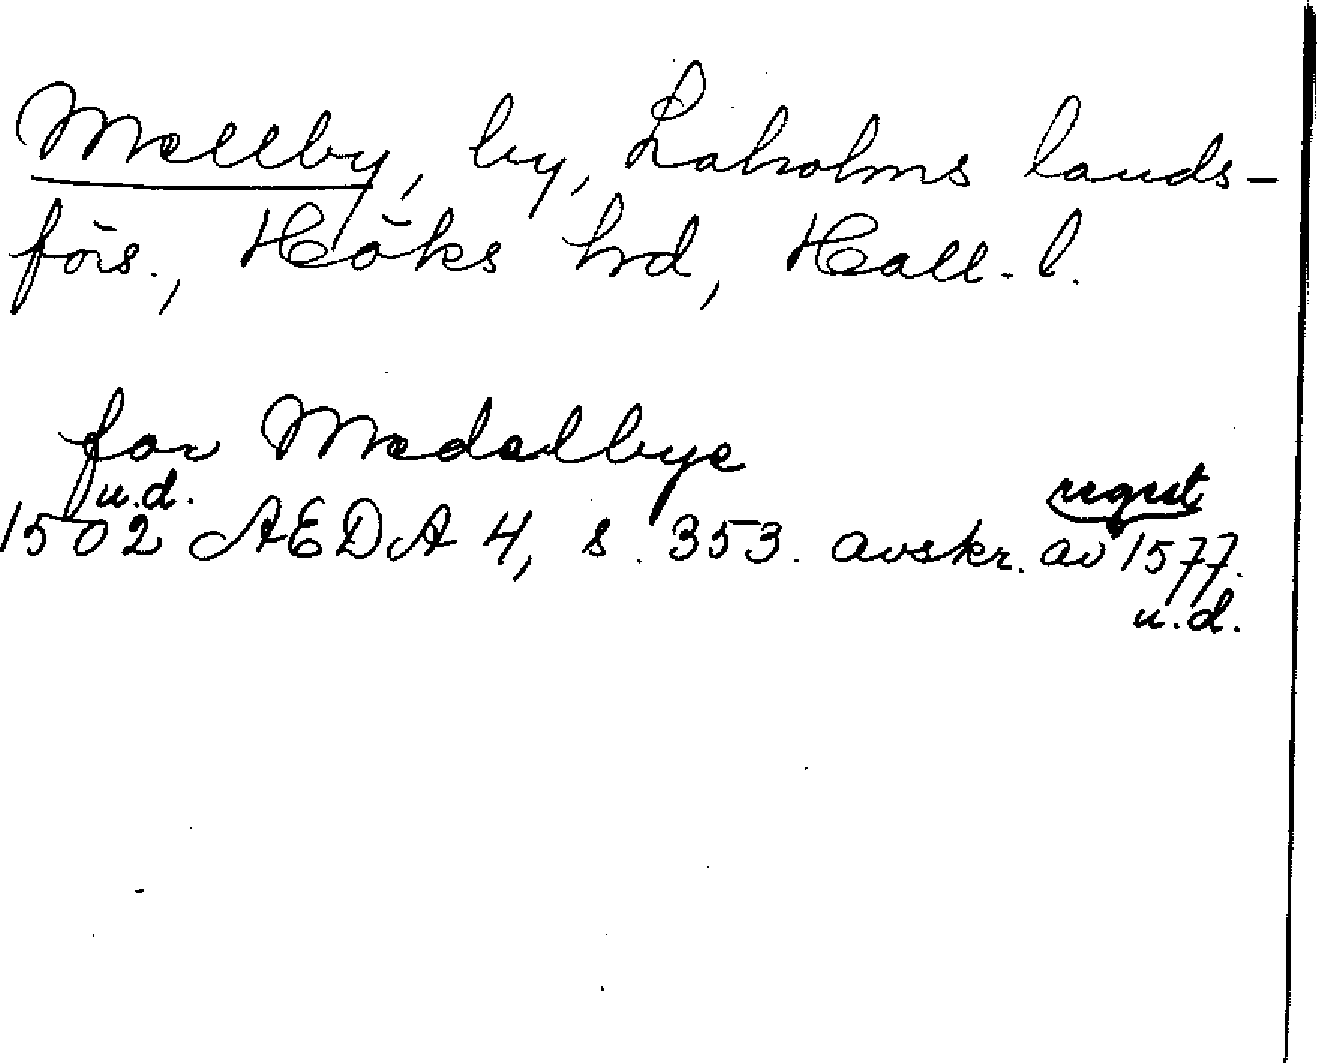 Mellby, by, Laholms lands-
förs., Höks hrd, Hall. l.
for Medelbye
u.d.
1502 AEDA 4, s. 353. avskr. av 1577.
u.d.